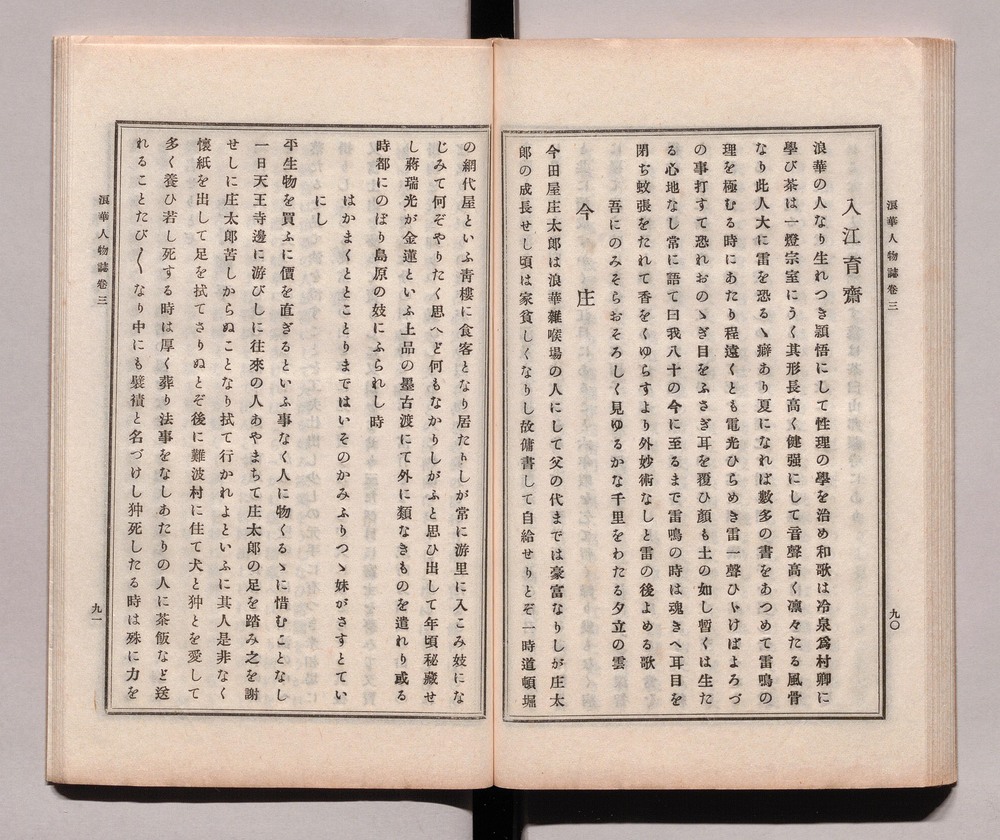 浪華人物誌卷三
九〇
入江育齋
浪華の人なり生れつき頴悟にして性理の學を治め和歌は冷泉爲村卿に
學び茶は一燈宗室にうく其形長高く健强にして音聲高く凛々たる風骨
なり此人大に雷を恐るヽ癖あり夏になれば數多の書をあつめて雷鳴の
理を極むる時にあたり程遠くとも電光ひらめき雷一聲ひゞけばよろづ
の事打すて恐れおのゝぎ目をふさぎ耳を覆ひ顏も土の如し暫くは生た
る心地なし常に語て曰我八十の今に至るまで雷鳴の時は魂きへ耳目を
閉ぢ蚊張をたれて香をくゆらすより外妙術なしと雷の後よめる歌
吾にのみそらおそろしく見ゆるかな千里をわたる夕立の雲
今庄
今田屋庄太郎は浪華雜喉場の人にして父の代までは豪富なりしが庄太
郎の成長せし頃は家貧しくなりし故傭書して自給せりとぞ一時道頓堀
の網代屋といふ靑樓に食客となり居たりしが常に游里に入こみ妓にな
じみて何ぞやりたく思へど何もなかりしがふと思ひ出して年頃秘藏せ
し蔣瑞光が金蓮といふ上品の墨古渡にて外に類なきものを遣れり或る
時都にのぼり島原の妓にふられし時
はかまくととことりまではいそのかみふりつゝ妹がさすとてい
にし
平生物を買ふに價を直ぎるといふ事なく人に物くるゝに惜むことなし
一日天王寺邊に游びしに往來の人あやまちて庄太郎の足を踏み之を謝
せしに庄太郎苦しからぬことなり拭て行かれよといふに其人是非なく
懷紙を出して足を拭てさりぬとぞ後に難波村に住て犬と狆とを愛して
多く養ひ若し死する時は厚く葬り法事をなしあたりの人に茶飯など送
れることたび〱なり中にも襞襀と名づけし狆死したる時は殊に力を
浪華人物誌卷三
九一